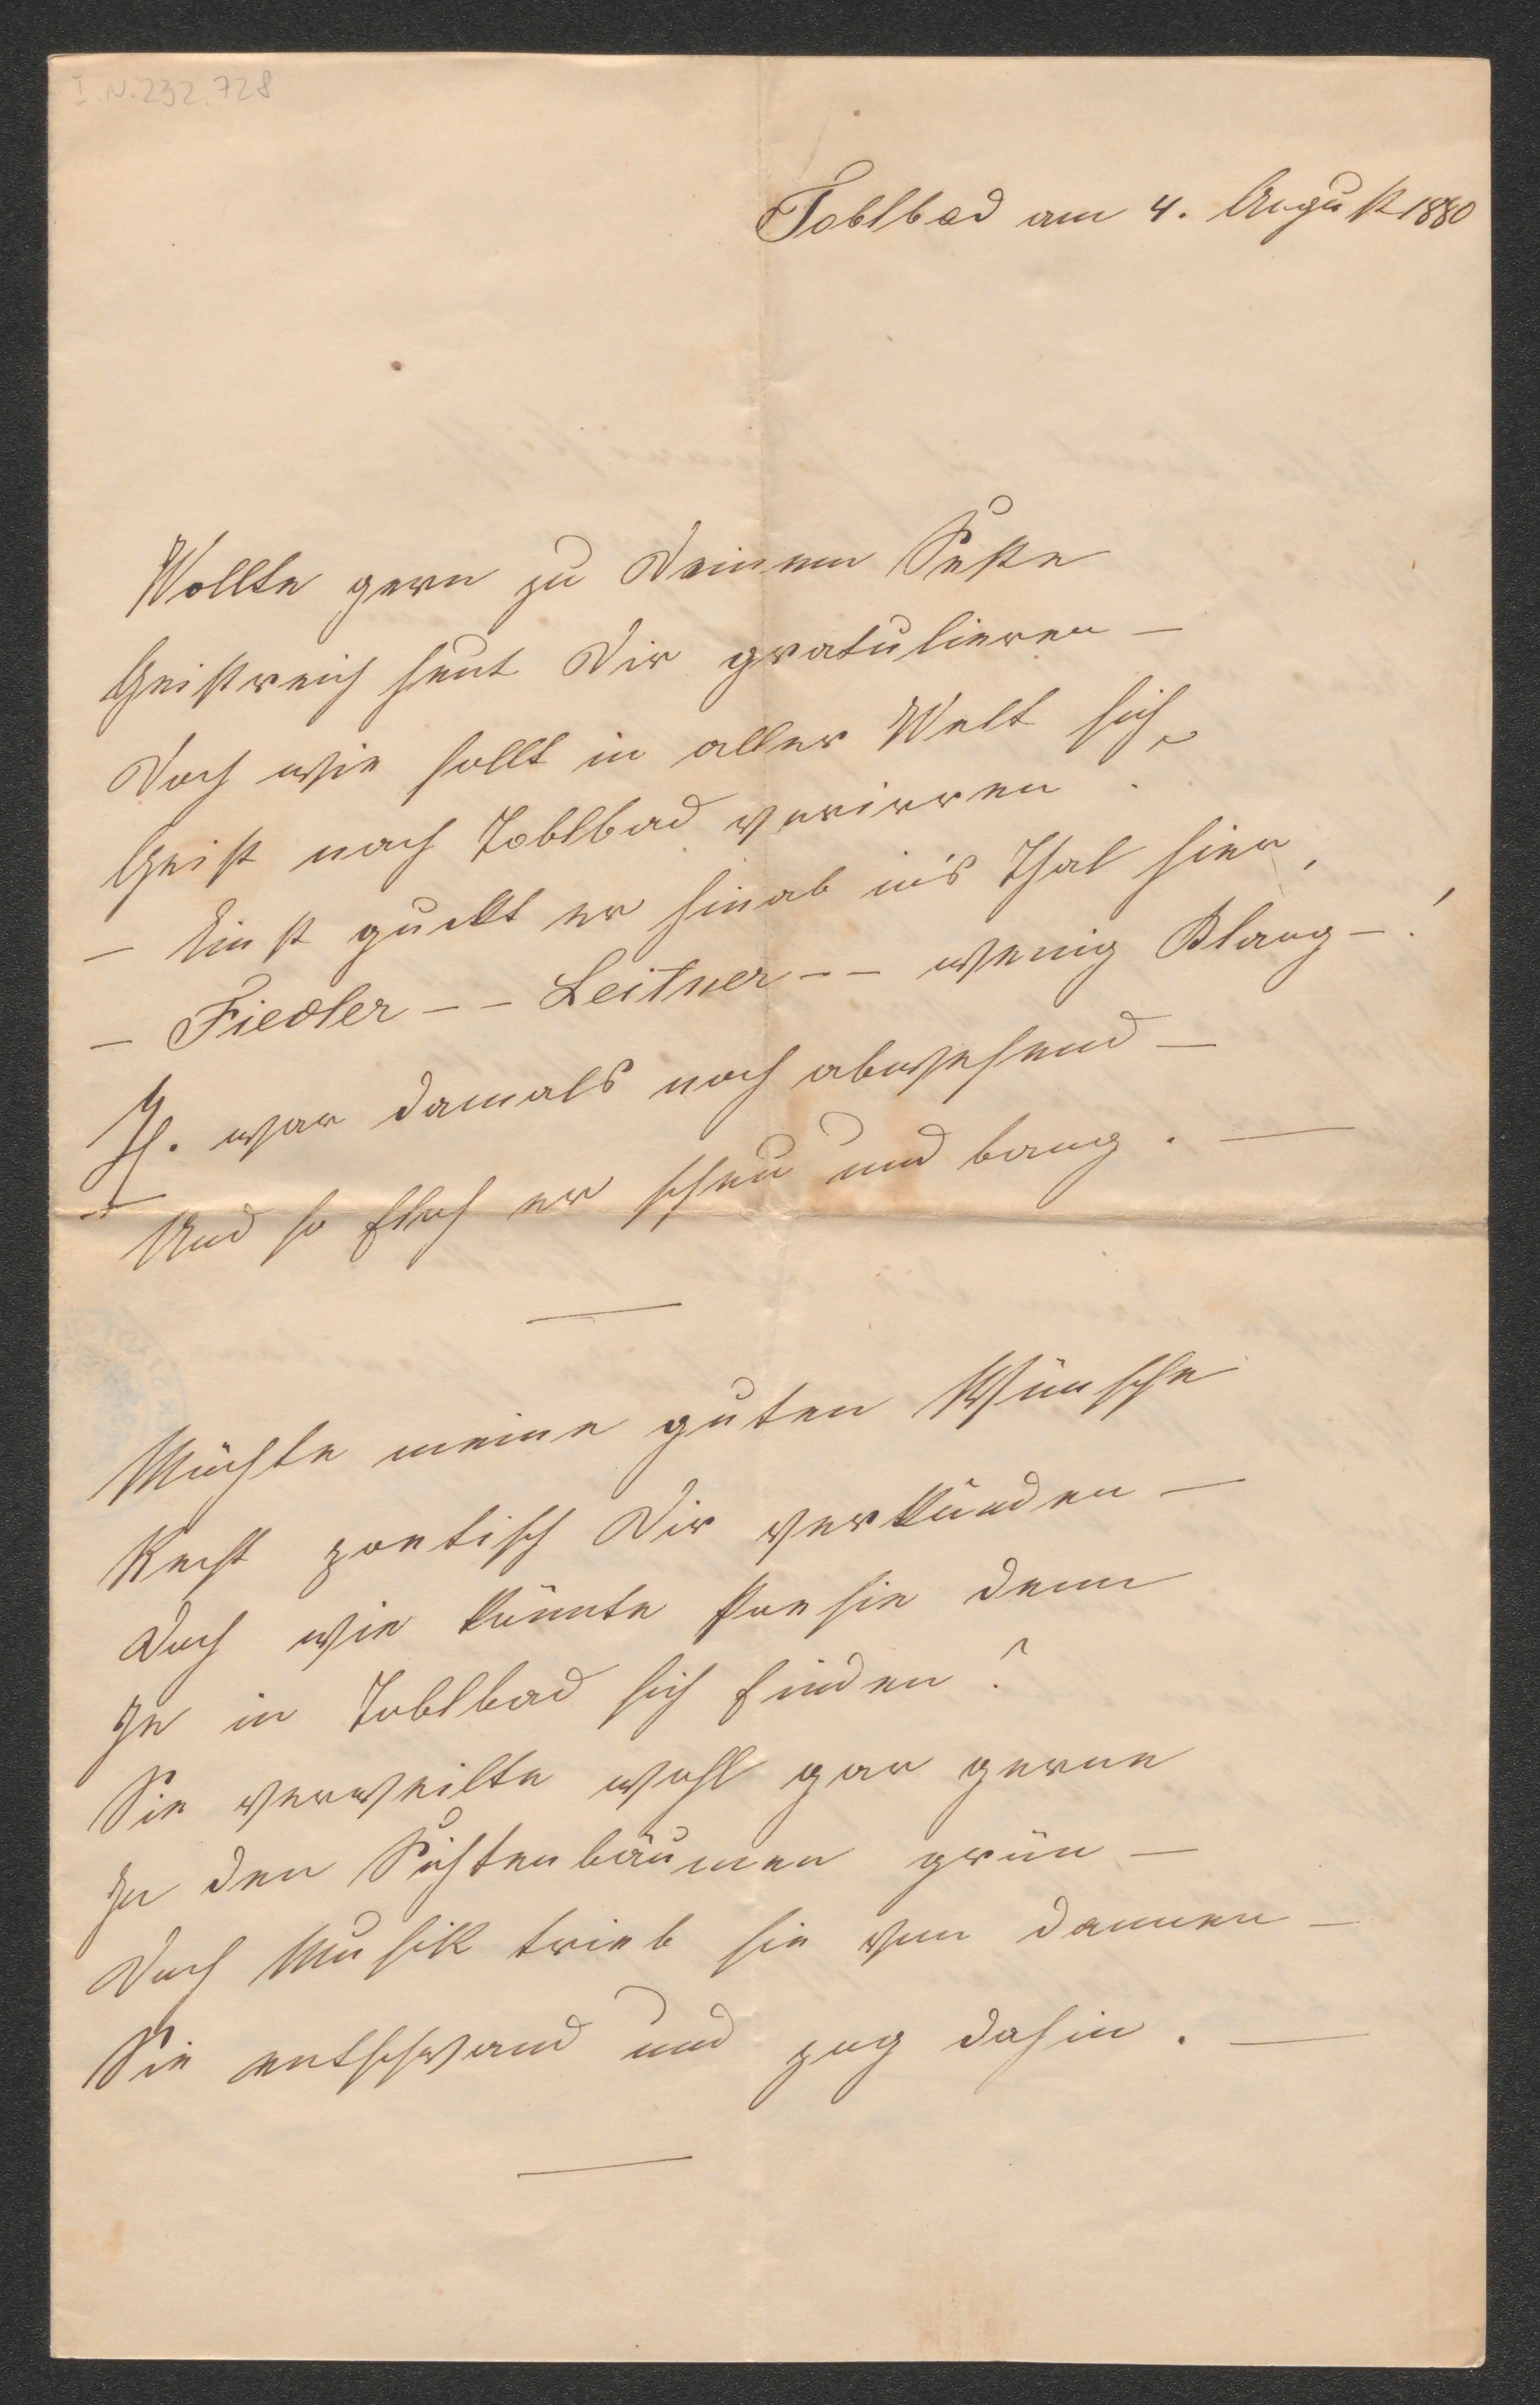 I.N.232.728
Toblbad am 4. August 1880
Wollte gern zu Deinem Feste
Geistreich heut Dir gratulieren –
Doch wie sollt in aller Welt sich
Geist nach Toblbad verirren.
– Einst guckt er hinab in's Thal hier,
– Fiedler – – Leitner – – wenig Klang – !
H. war damals noch abwesend –
Und so floh er scheu und bang. —
Möchte meine guten Wünsche
Recht poetisch Dir verkünden –
Doch wie könnte Poesie denn
Je in Toblbad sich finden?
Sie verweilte wohl gar gerne
In den Fichtenbäumen grün –
Doch Musik trieb sie von dannen –
Sie entschwand und zog dahin. —